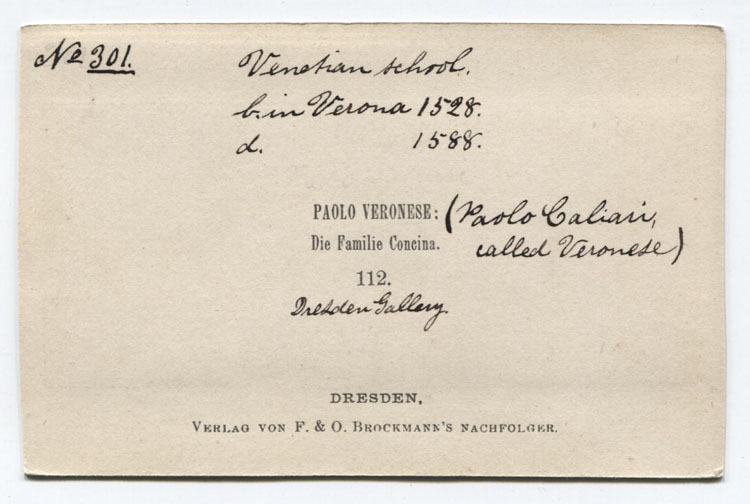 No 301.
Venetian school.
b. in Verona 1528.
d. 1588.
PAOLO VERONESE: (Paolo Caliari,
Die Familie Concina. called Veronese)
112.
Dresden Gallery.
DRESDEN,
VERLAG VON F. & O. BROCKMANN'S NACHFOLGER.